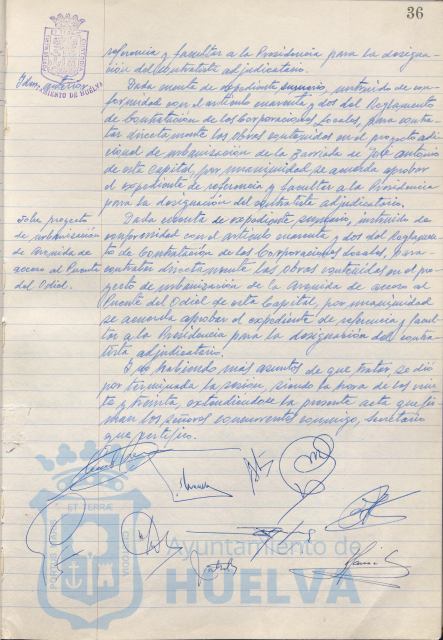 36
referencia y facultar a la Presidencia para la designa-
ción del contratista adjudicatario.
Idem. anterior
AYUNTAMIENTO DE HUELVA
Dada cuenta de expediente sumario, instruido de con-
formidad con el artículo cuarenta y dos del Reglamento
de Contratación de las Corporaciones Locales, para contra-
tar directamente las obras contenidas en el proyecto adi-
cional de urbanización de la Barriada de José Antonio
de esta Capital, por unanimidad se acuerda aprobar
el expediente de referencia y facultar a la Presidencia
para la designación del contratista adjudicatario.
Sobre proyecto
de urbanización
de Avenida de
acceso al Puente
del Odiel.
Dada cuenta de expediente sumario, instruido de
conformidad con el artículo cuarenta y dos del Reglamen-
to de Contratación de las Corporaciones Locales, para
contratar directamente las obras contenidas en el pro-
yecto de urbanización de la Avenida de acceso al
Puente del Odiel de esta Capital, por unanimidad
se acuerda aprobar el expediente de referencia y facul-
tar a la Presidencia para la designación del contra-
tista adjudicatario.
Y no habiendo más asuntos de que tratar se dió
por terminada la sesión, siendo la hora de las vein-
te y treinta, extendiéndose la presente acta que fir-
man los señores concurrentes conmigo, Secretario
que certifico.
PORTUS MARIS
ET TERRAE
CUSTODIA
Ayuntamiento de
HUELVA